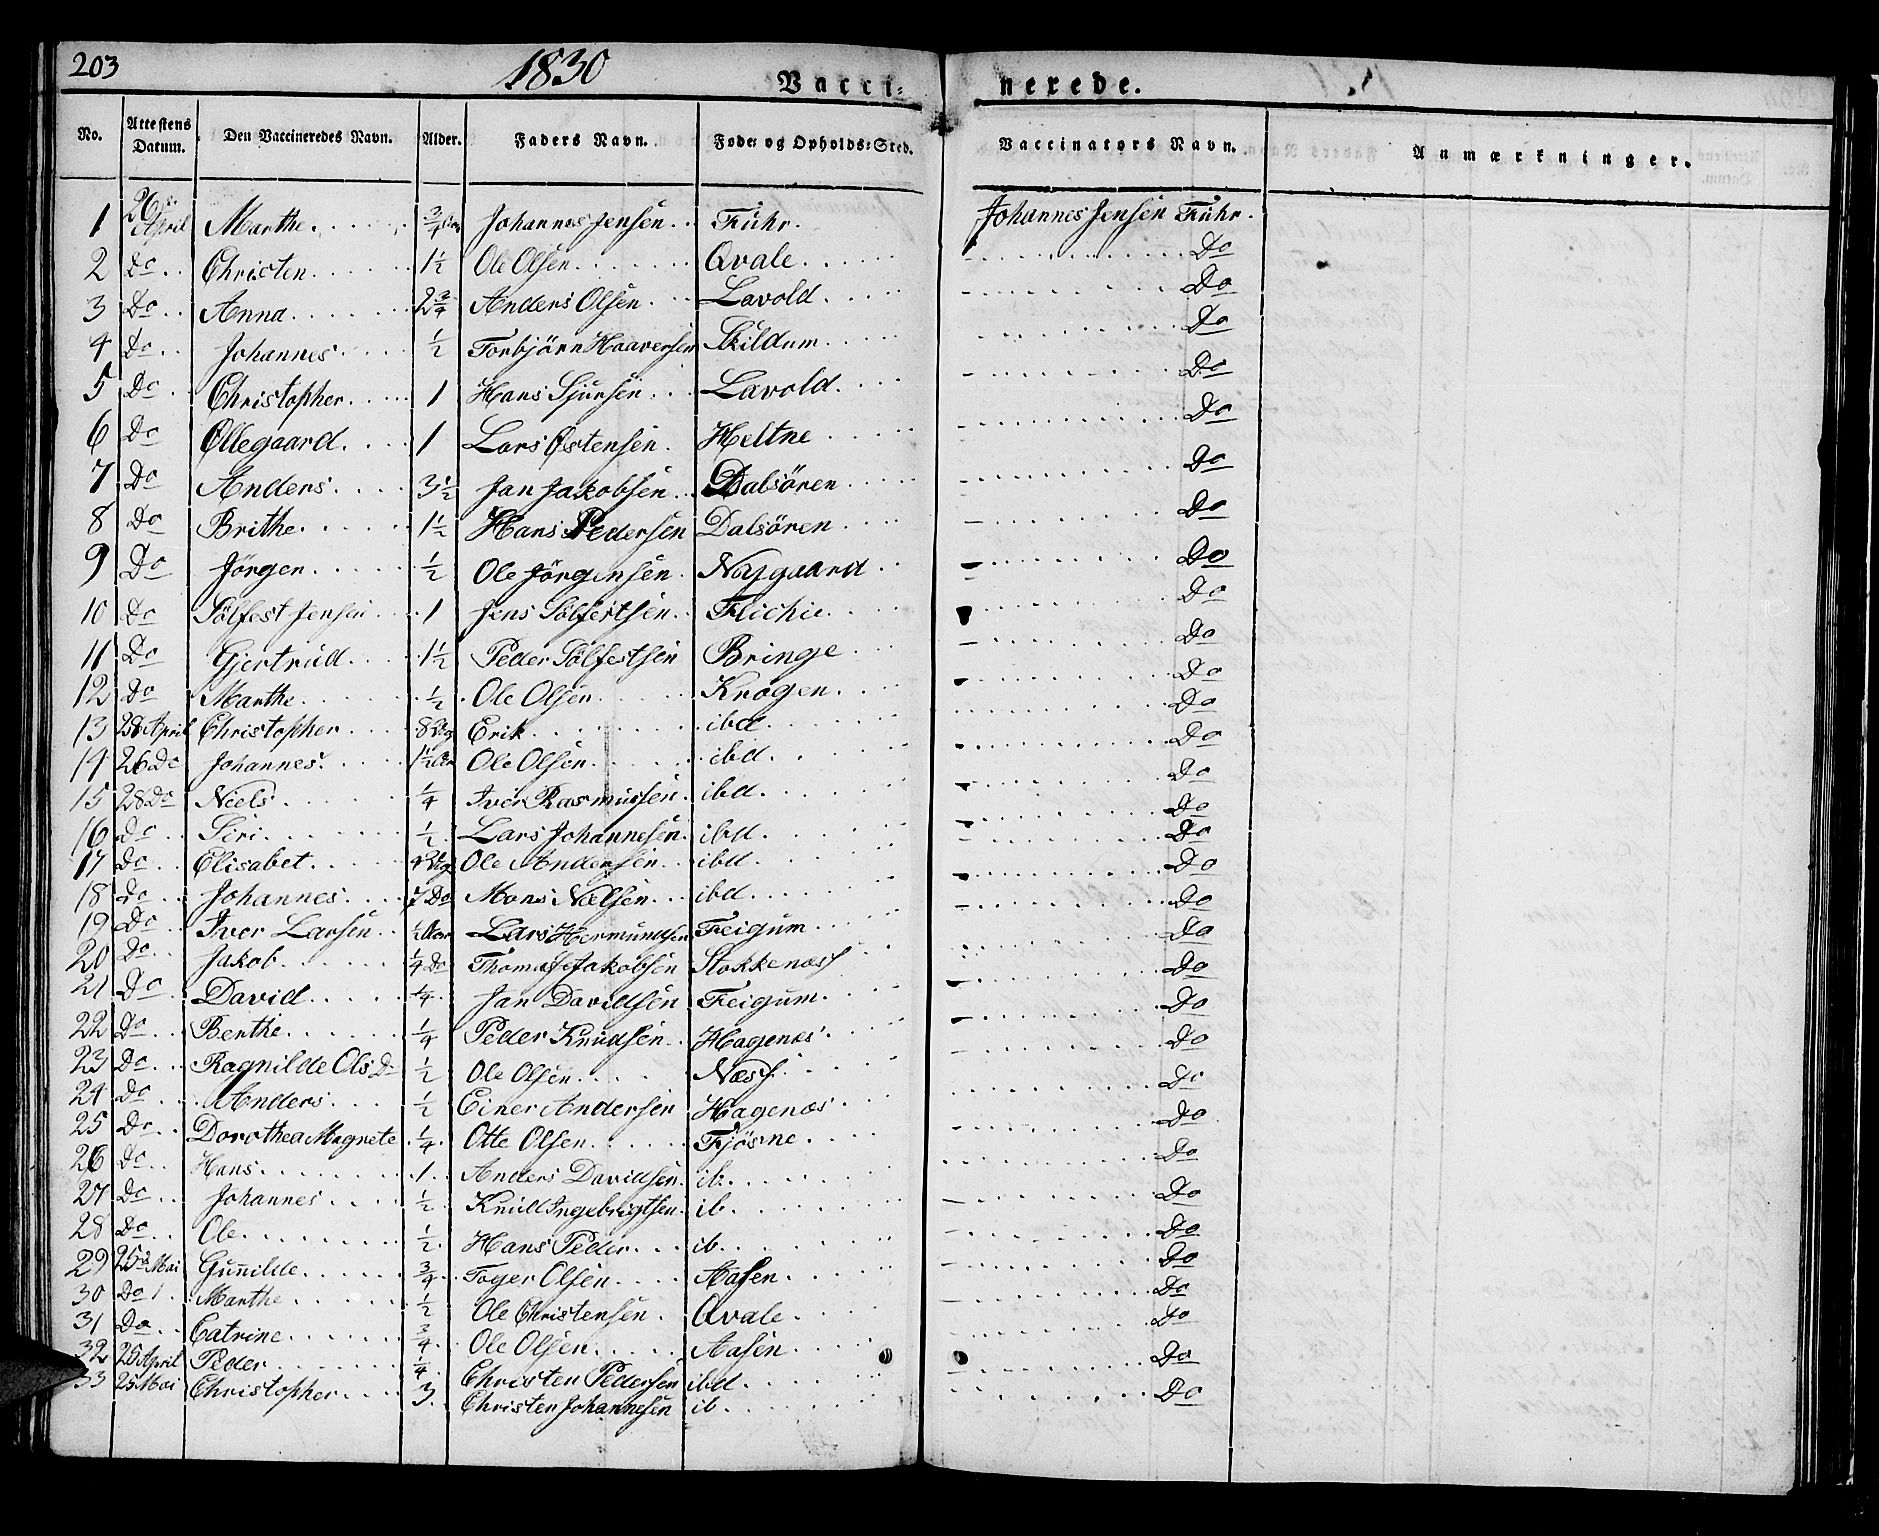 203 1830 Vacci= nerede.
No. Attestens Datum. Den Vaccineredes Navn. Alder. Faders Navn. Føde= og Opholds=Sted. Vaccinators Navn. Anmærkninger.
1 26 April Marthe 3/4 Johannes Jensen Fuhr. Johannes Jensen Fuhr.
2 Do Christen 1 1/2 Ole Olsen Qvale Do
3 Do Anna 2 3/4 Anders Olsen Lavold Do
4 Do Johannes 1/2 Torbjörn Haaversen Skildum Do
5 Do Christopher 1 Hans Sjursen Lavold Do
6 Do Øllegaard 1 Lars Østensen Heltne Do
7 Do Anders 3 1/2 Jan Jakobsen Dalsören Do
8 Do Brithe 1 1/2 Hans Pedersen Dalsören Do
9 Do Jörgen 1/2 Ole Jörgensen Nojgaard Do
10 Do Sölfest Jensen 1 Jens Sölfestsen Flichie Do
11 Do Gjertrud 1 1/2 Peder Sölfestsen Bringe Do
12 Do Marthe 1/2 Ole Olsen Krogen Do
13 28 April Christopher 8 Erik ibd Do
14 26 Do Johannes 1 1/2 Ole Olsen ibd Do
15 28 Do Niels 1/4 Iver Rasmussen ibd Do
16 Do Siri 1/2 Lars Johannesen ibd Do
17 Do Elisabet Ole Andersen ibd Do
18 Do Johannes 7 Do Mons Nielsen ibd Do
19 Do Iver Larsen 1/2 Aar Lars Hermundsen Feigum Do
20 Do Jakob 1/4 Do Thomas Jakobsen Stokkenæss Do
21 Do David 1/4 Jan Davidsen Feigum Do
22 Do Berthe 1/4 Peder Knudsen Hagenæs Do
23 Do Ragnilde Ols D 1/2 Ole Olsen Næss Do
24 Do Anders 1/2 Einer Andersen Hagenæs Do
25 Do Dorothea Magrete 1/4 Otte Olsen Fjösne Do
26 Do Hans 1 Anders Davidsen ib. Do
27 Do Johannes 1/2 Knud Ingebrigtsen ib Do
28 Do Ole 1/2 Hans Peder ib Do
29 25 Mai Gunilde 3/4 Toger Olsen Aasen Do
30 Do Marthe 1/2 Ole Christensen Qvale Do
31 Do Catrine 3/4 Ole Olsen Aasen Do
32 25 April Peder 1/4 Christen Pedersen ibd Do
33 25 Mai Christopher 3 Christen Johannesen ib Do